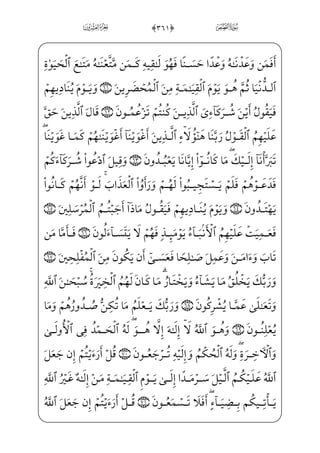 سُورَةُ الْقَصَصِ ﴿٣٦١﴾ الْجُزْءُ الْعِشْرُونَ
أَفَمَن وَعَدْنَٰهُ وَعْدًا حَسَنًا فَهُوَ لَٰقِيهِ كَمَن مَّتَّعْنَٰهُ مَتَٰعَ ٱلْحَيَوٰةِ
ٱلدُّنْيَا ثُمَّ هُوَ يَوْمَ ٱلْقِيَٰمَةِ مِنَ ٱلْمُحْضَرِينَ ٦١ وَيَوْمَ يُنَادِيهِمْ
فَيَقُولُ أَيْنَ شُرَكَآءِىَ ٱلَّذِينَ كُنتُمْ تَزْعُمُونَ ٦٢ قَالَ ٱلَّذِينَ حَقَّ
عَلَيْهِمُ ٱلْقَوْلُ رَبَّنَا هَٰٓؤُلَآءِ ٱلَّذِينَ أَغْوَيْنَآ أَغْوَيْنَٰهُمْ كَمَا غَوَيْنَا ۖ
تَبَرَّأْنَآ إِلَيْكَ ۖ مَا كَانُوٓا۟ إِيَّانَا يَعْبُدُونَ ٦٣ وَقِيلَ ٱدْعُوا۟ شُرَكَآءَكُمْ
فَدَعَوْهُمْ فَلَمْ يَسْتَجِيبُوا۟ لَهُمْ وَرَأَوُا۟ ٱلْعَذَابَ ۚ لَوْ أَنَّهُمْ كَانُوا۟
يَهْتَدُونَ ٦٤ وَيَوْمَ يُنَادِيهِمْ فَيَقُولُ مَاذَآ أَجَبْتُمُ ٱلْمُرْسَلِينَ ٦٥
فَعَمِيَتْ عَلَيْهِمُ ٱلْأَنۢبَآءُ يَوْمَئِذٍ فَهُمْ لَا يَتَسَآءَلُونَ ٦٦ فَأَمَّا مَن
تَابَ وَءَامَنَ وَعَمِلَ صَٰلِحًا فَعَسَىٰٓ أَن يَكُونَ مِنَ ٱلْمُفْلِحِينَ ٦٧
وَرَبُّكَ يَخْلُقُ مَا يَشَآءُ وَيَخْتَارُ ۗ مَا كَانَ لَهُمُ ٱلْخِيَرَةُ ۚ سُبْحَٰنَ ٱللَّهِ
وَتَعَٰلَىٰ عَمَّا يُشْرِكُونَ ٦٨ وَرَبُّكَ يَعْلَمُ مَا تُكِنُّ صُدُورُهُمْ وَمَا
يُعْلِنُونَ ٦٩ وَهُوَ ٱللَّهُ لَآ إِلَٰهَ إِلَّا هُوَ ۖ لَهُ ٱلْحَمْدُ فِى ٱلْأُولَىٰ
وَٱلْءَاخِرَةِ ۖ وَلَهُ ٱلْحُكْمُ وَإِلَيْهِ تُرْجَعُونَ ٧٠ قُلْ أَرَءَيْتُمْ إِن جَعَلَ
ٱللَّهُ عَلَيْكُمُ ٱلَّيْلَ سَرْمَدًا إِلَىٰ يَوْمِ ٱلْقِيَٰمَةِ مَنْ إِلَٰهٌ غَيْرُ ٱللَّهِ
يَأْتِيكُم بِضِيَآءٍ ۖ أَفَلَا تَسْمَعُونَ ٧١ قُلْ أَرَءَيْتُمْ إِن جَعَلَ ٱللَّهُ